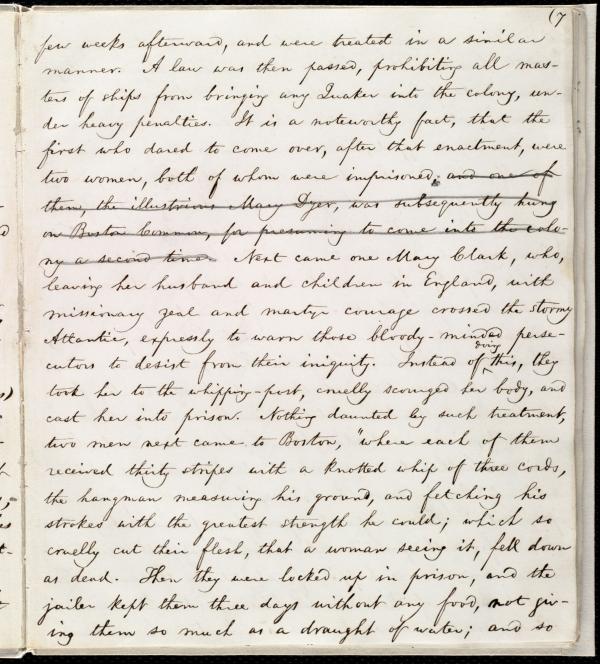 (7
few weeks afterward, and were treated in a similar
manner. A law was then passed, prohibiting all mas-
ters of ships from bringing any Quaker into the colony, un-
der heavy penalties. It is a noteworthy fact, that the
first who dared to come over, after that enactment, were
two women, both of whom were imprisoned; and one of
them, the illustrious Mary Dyer, was subsequently hung
on Boston Common, for presuming to come into the colo-
ny a second time. Next came one Mary Clark, who,
leaving her husband and children in England, with
missionary zeal and martyr courage crossed the stormy
Atlantic, expressly to warn those bloody-minded perse-
cutors to desist from their iniquity. Instead of doing this, they
took her to the whipping-post, cruelly scourged her body, and
cast her into prison. Nothing daunted by such treatment,
two men next came to Boston, "where each of them
received thirty stripes with a knotted whip of three cords,
the hangman measuring his ground, and fetching his
strokes with the greatest strength he could; which so
cruelly cut their flesh, that a woman seeing it, fell down
as dead. Then they were locked up in prison, and the
jailer kept them three days without any food, not giv-
ing them so much as a draught of water; and so